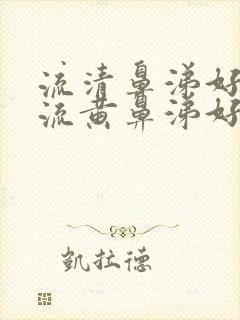 流清鼻涕好
流黄鼻涕好
凯拉德